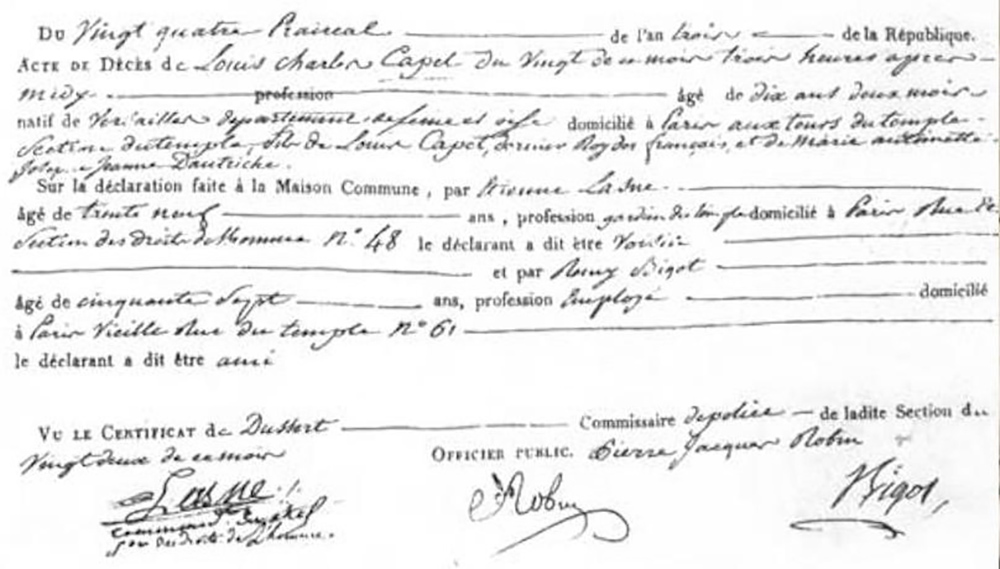 Du Vingt quatre Prairial de l'an trois de la République.
Acte de Décès de Louis Charles Capet du Vingt de ce mois trois heures apres
midy profession âgé de dix ans deux mois
natif de Versailles departement de seine et oise domicilié à Paris aux tours du temple
Section du temple, fils de Louis Capet, dernier Roy des français, et de Marie antoinette
Josep e Jeanne Dautriche.
Sur la déclaration faite à la Maison Commune, par Etienne Lasne
âgé de trente neuf ans, profession gardien du temple domicilié à Paris Rue et
Section des droits de l'homme N.° 48 le déclarant a dit être Voisin
et par Remy Bigot
âgé de cinquante Sept ans, profession Employé domicilié
à Paris Vieille Rue du temple N° 61
le déclarant a dit être ami
Vu le Certificat de Dussert Commissaire de police de ladite Section du
Vingt deux de ce mois Officier public. Pierre Jacques Robin
Lasne Robin Bigot,
son des droits de l'homme.